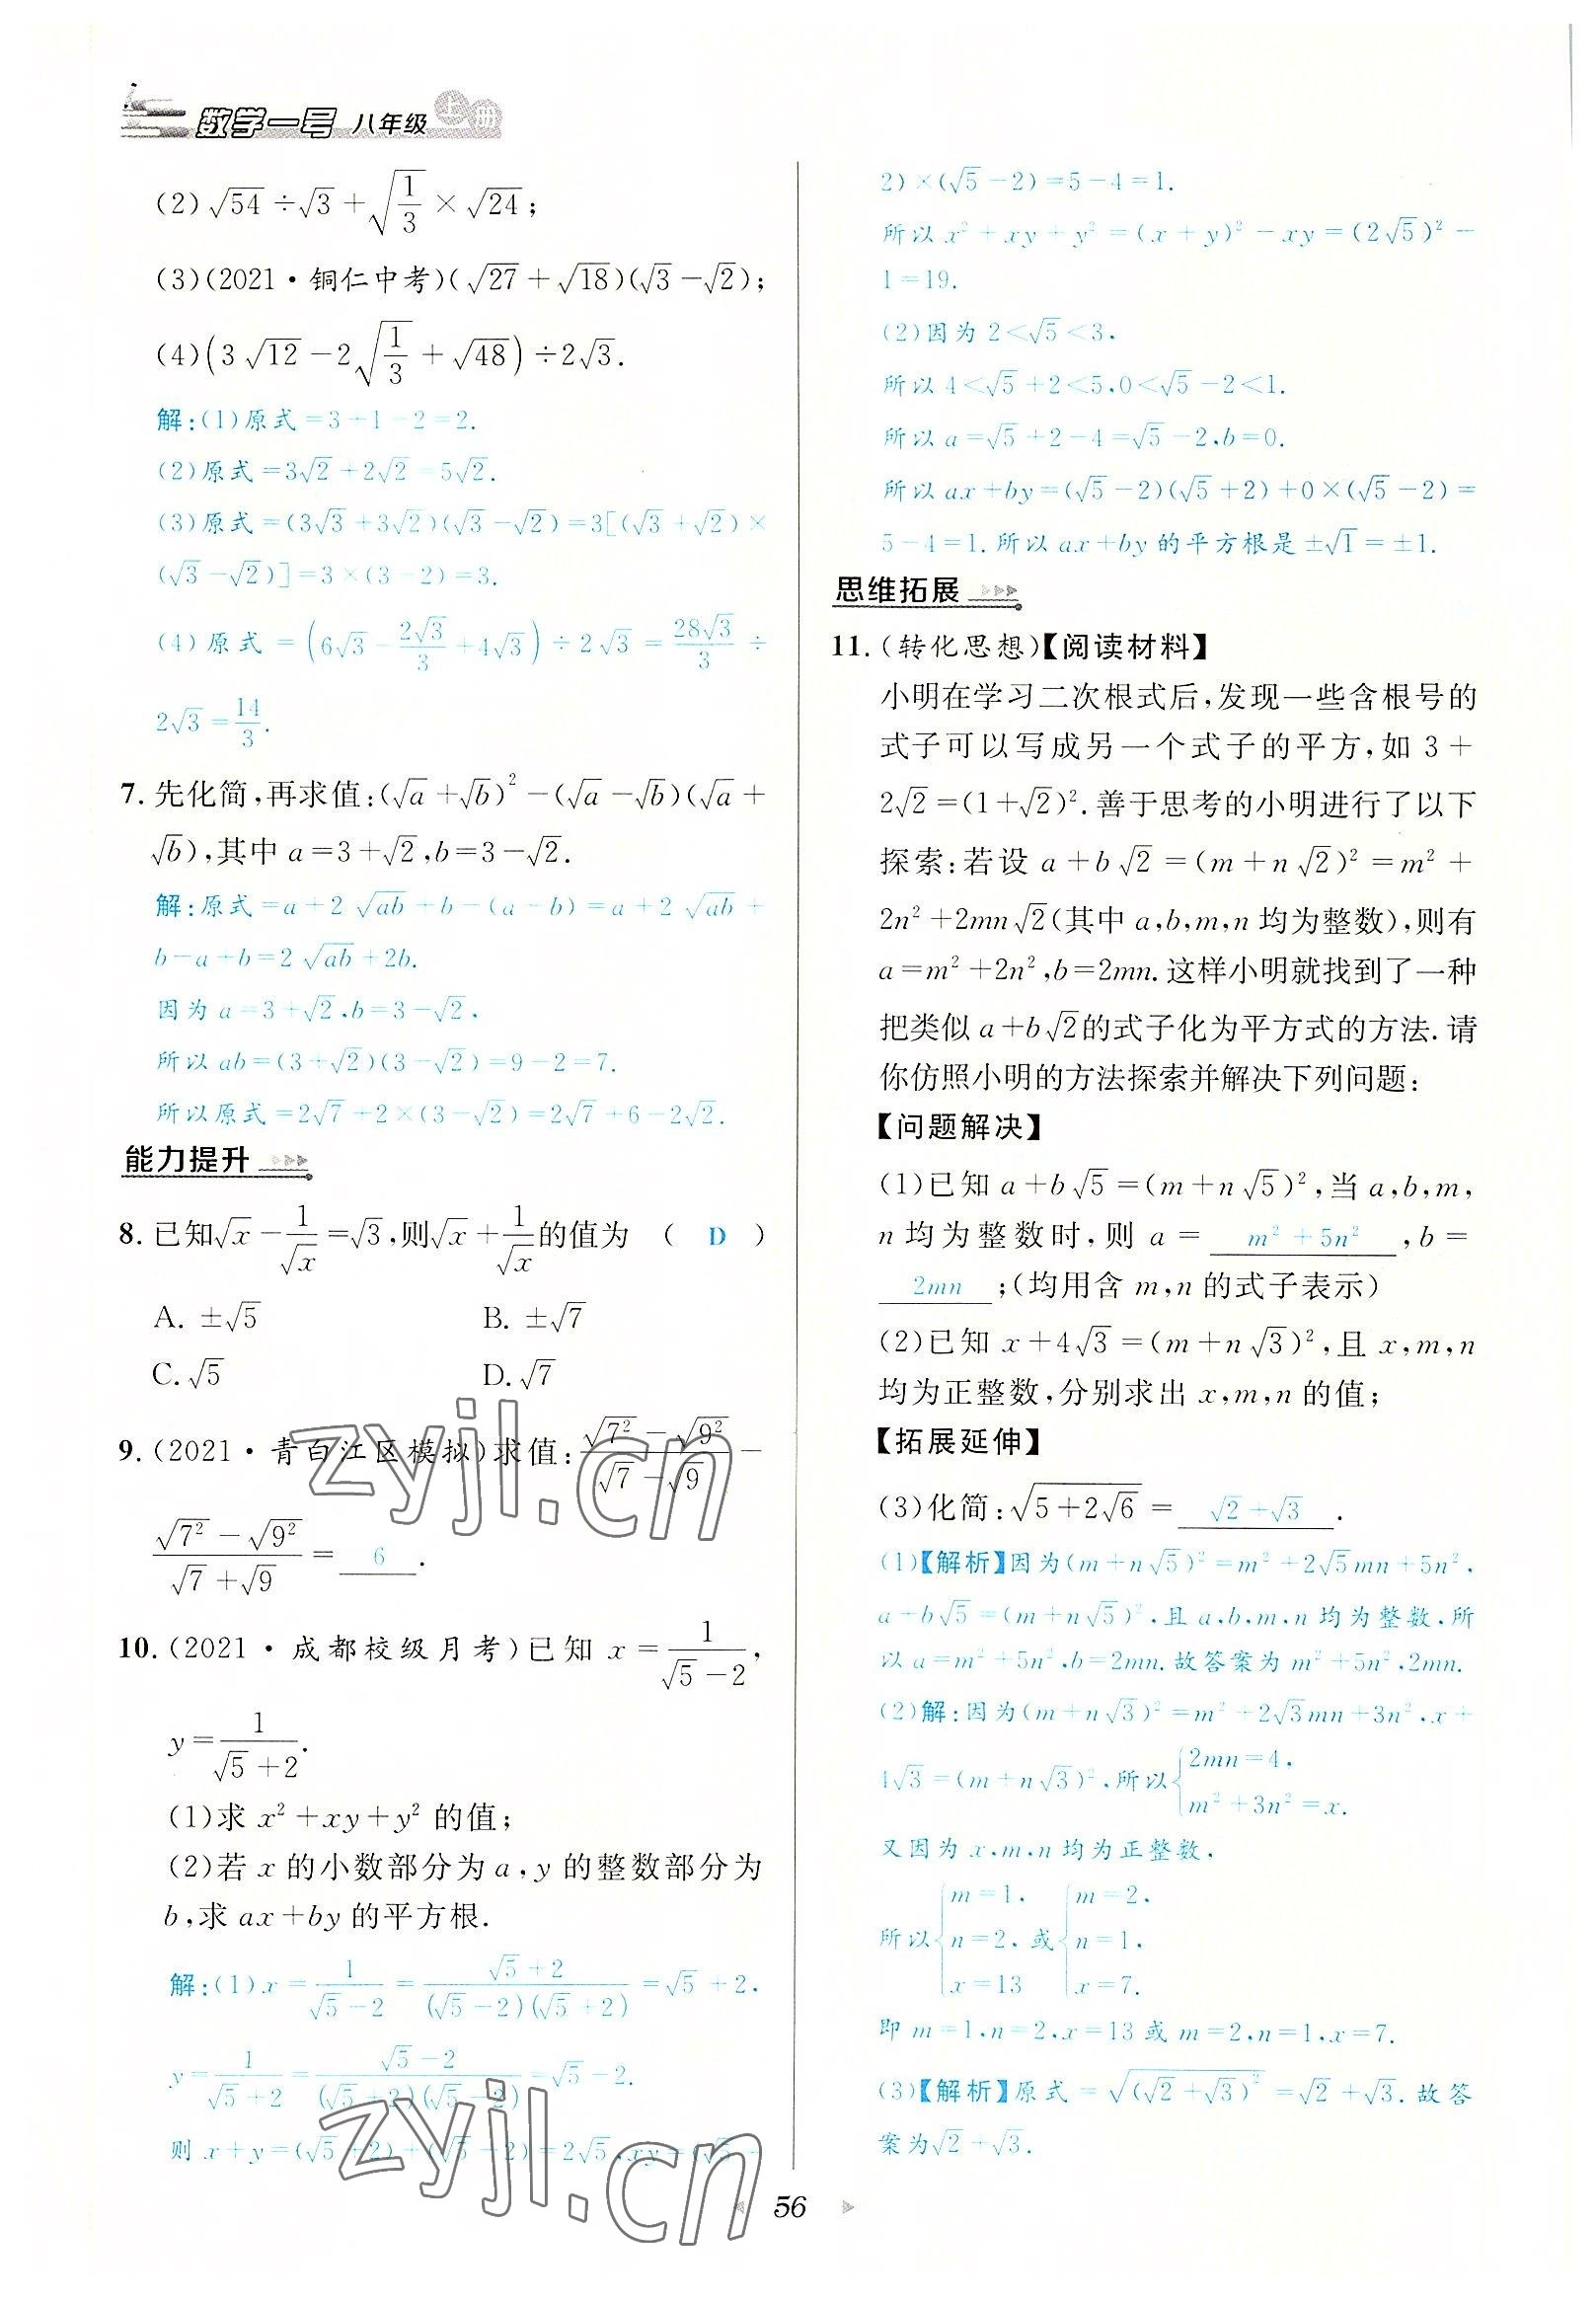 数学一号 八年级 上册
(2)√54÷√3+√(1/3)×√24;
(3)(2021·铜仁中考)(√27+√18)(√3-√2);
(4)(3√12-2√(1/3)+√48)÷2√3.
解:(1)原式=3+1-2=2.
(2)原式=3√2+2√2=5√2.
(3)原式=(3√3+3√2)(√3-√2)=3[(√3+√2)×
(√3-√2)]=3×(3-2)=3.
(4)原式=(6√3-2√3/3+4√3)÷2√3=28√3/3÷
2√3=14/3.
7.先化简,再求值:(√a+√b)²-(√a-√b)(√a+
√b),其中a=3+√2,b=3-√2.
解:原式=a+2√ab+b-(a-b)=a+2√ab+
b-a+b=2√ab+2b.
因为a=3+√2,b=3-√2,
所以ab=(3+√2)(3-√2)=9-2=7.
所以原式=2√7+2×(3-√2)=2√7+6-2√2.
能力提升
8.已知√x-1/√x=√3,则√x+1/√x的值为 ( D )
A. ±√5 B. ±√7
C.√5 D.√7
9.(2021·青白江区模拟)求值:(√7²-√9²)/(√7-√9)-
(√7²-√9²)/(√7+√9)= 6 .
10.(2021·成都校级月考)已知x=1/(√5-2),
y=1/(√5+2).
(1)求x²+xy+y²的值;
(2)若x的小数部分为a,y的整数部分为
b,求ax+by的平方根.
解:(1)x=1/(√5-2)=(√5+2)/((√5-2)(√5+2))=√5+2,
y=1/(√5+2)=(√5-2)/((√5+2)(√5-2))=√5-2.
则x+y=(√5+2)+(√5-2)=2√5,xy=(√5+
2)×(√5-2)=5-4=1.
所以x²+xy+y²=(x+y)²-xy=(2√5)²-
1=19.
(2)因为2<√5<3,
所以4<√5+2<5,0<√5-2<1.
所以a=√5+2-4=√5-2,b=0.
所以ax+by=(√5-2)(√5+2)+0×(√5-2)=
5-4=1.所以ax+by的平方根是±√1=±1.
思维拓展
11.(转化思想)【阅读材料】
小明在学习二次根式后,发现一些含根号的
式子可以写成另一个式子的平方,如3+
2√2=(1+√2)².善于思考的小明进行了以下
探索:若设a+b√2=(m+n√2)²=m²+
2n²+2mn√2(其中a,b,m,n均为整数),则有
a=m²+2n²,b=2mn.这样小明就找到了一种
把类似a+b√2的式子化为平方式的方法.请
你仿照小明的方法探索并解决下列问题:
【问题解决】
(1)已知a+b√5=(m+n√5)²,当a,b,m,
n均为整数时,则a= m²+5n² ,b=
2mn ;(均用含m,n的式子表示)
(2)已知x+4√3=(m+n√3)²,且x,m,n
均为正整数,分别求出x,m,n的值;
【拓展延伸】
(3)化简:√(5+2√6)= √2+√3 .
(1)【解析】因为(m+n√5)²=m²+2√5mn+5n²,
a+b√5=(m+n√5)²,且a,b,m,n均为整数,所
以a=m²+5n²,b=2mn.故答案为m²+5n²,2mn.
(2)解:因为(m+n√3)²=m²+2√3mn+3n²,x+
4√3=(m+n√3)²,所以{2mn=4,
m²+3n²=x.
又因为x,m,n均为正整数,
所以{m=1, n=2, x=13 或{m=2, n=1, x=7.
即m=1,n=2,x=13或m=2,n=1,x=7.
(3)【解析】原式=√((√2+√3)²)=√2+√3.故答
案为√2+√3.
56
zyjl.cn
zyjl.cn